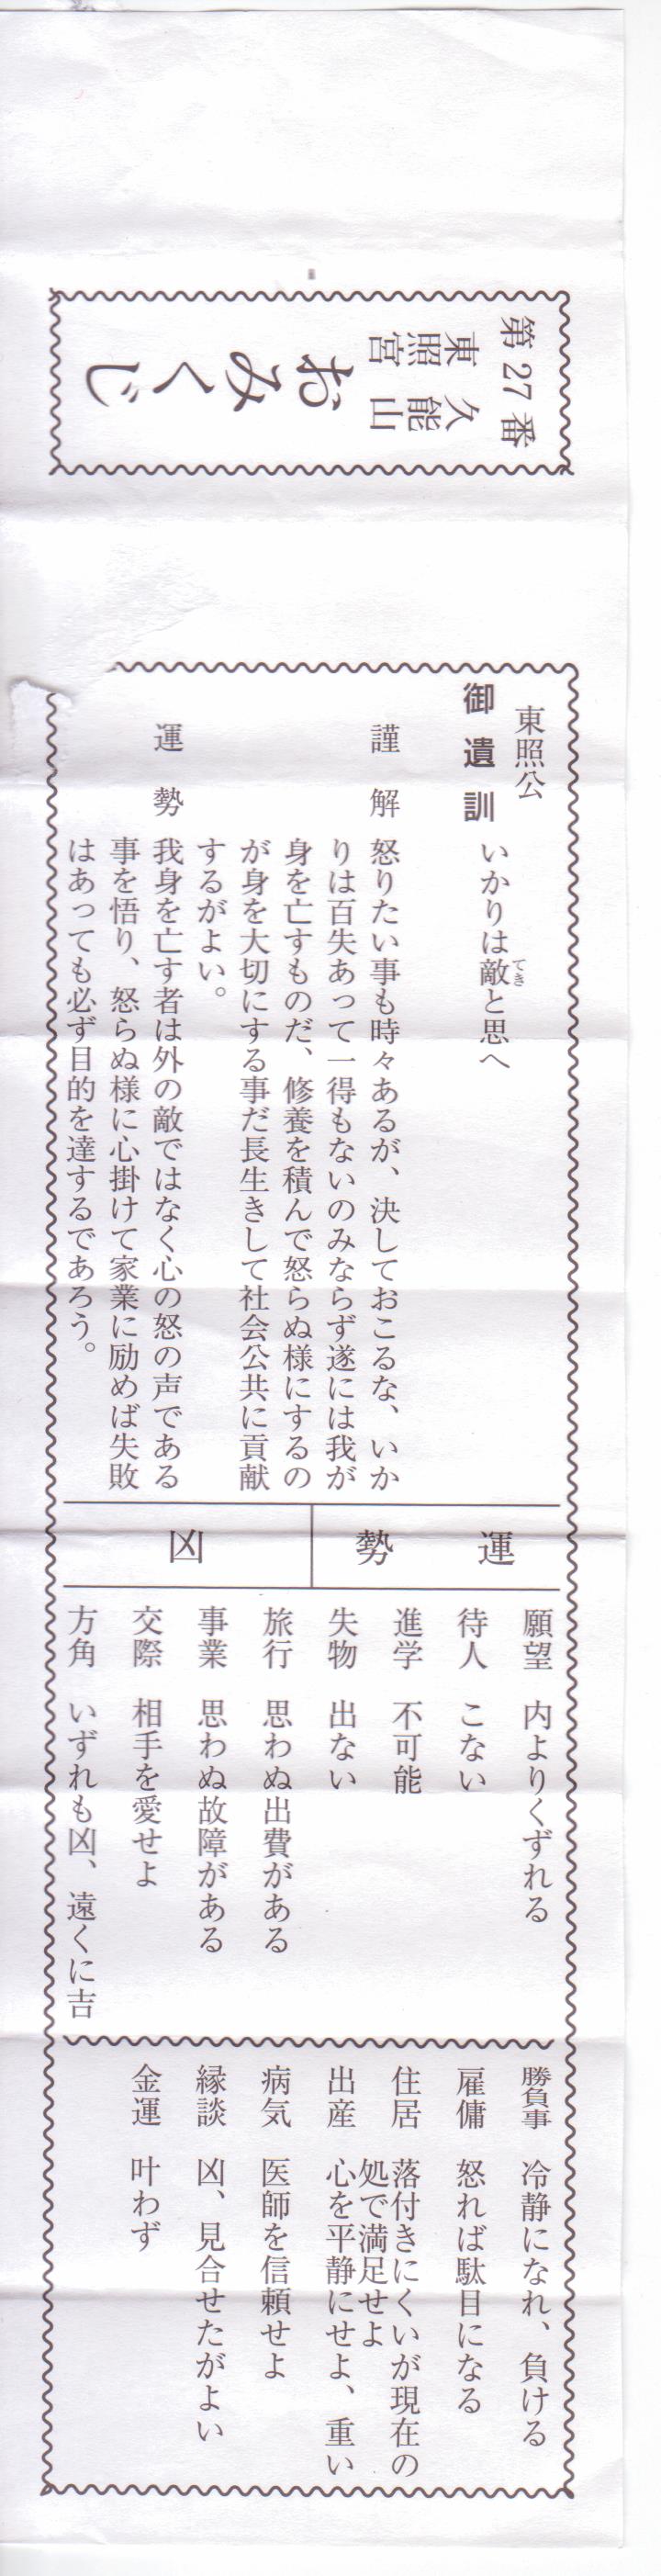 第27番
久能山
東照宮
おみくじ
東照公
御遺訓
いかりは敵と思へ
てき
謹解
怒りたい事も時々あるが、決しておこるな、いか
りは百失あって一得もないのみならず遂には我が
身を亡すものだ、修養を積んで怒らぬ様にするの
が身を大切にする事だ長生きして社会公共に貢献
するがよい。
運勢
我身を亡す者は外の敵ではなく心の怒の声である
事を悟り、怒らぬ様に心掛けて家業に励めば失敗
はあっても必ず目的を達するであろう。
運勢
凶
願望 内よりくずれる
待人 こない
進学 不可能
失物 出ない
旅行 思わぬ出費がある
事業 思わぬ故障がある
交際 相手を愛せよ
方角 いずれも凶、遠くに吉
勝負事 冷静になれ、負ける
雇傭 怒れば駄目になる
住居 落付きにくいが現在の
処で満足せよ
出産 心を平静にせよ、重い
病気 医師を信頼せよ
縁談 凶、見合せたがよい
金運 叶わず